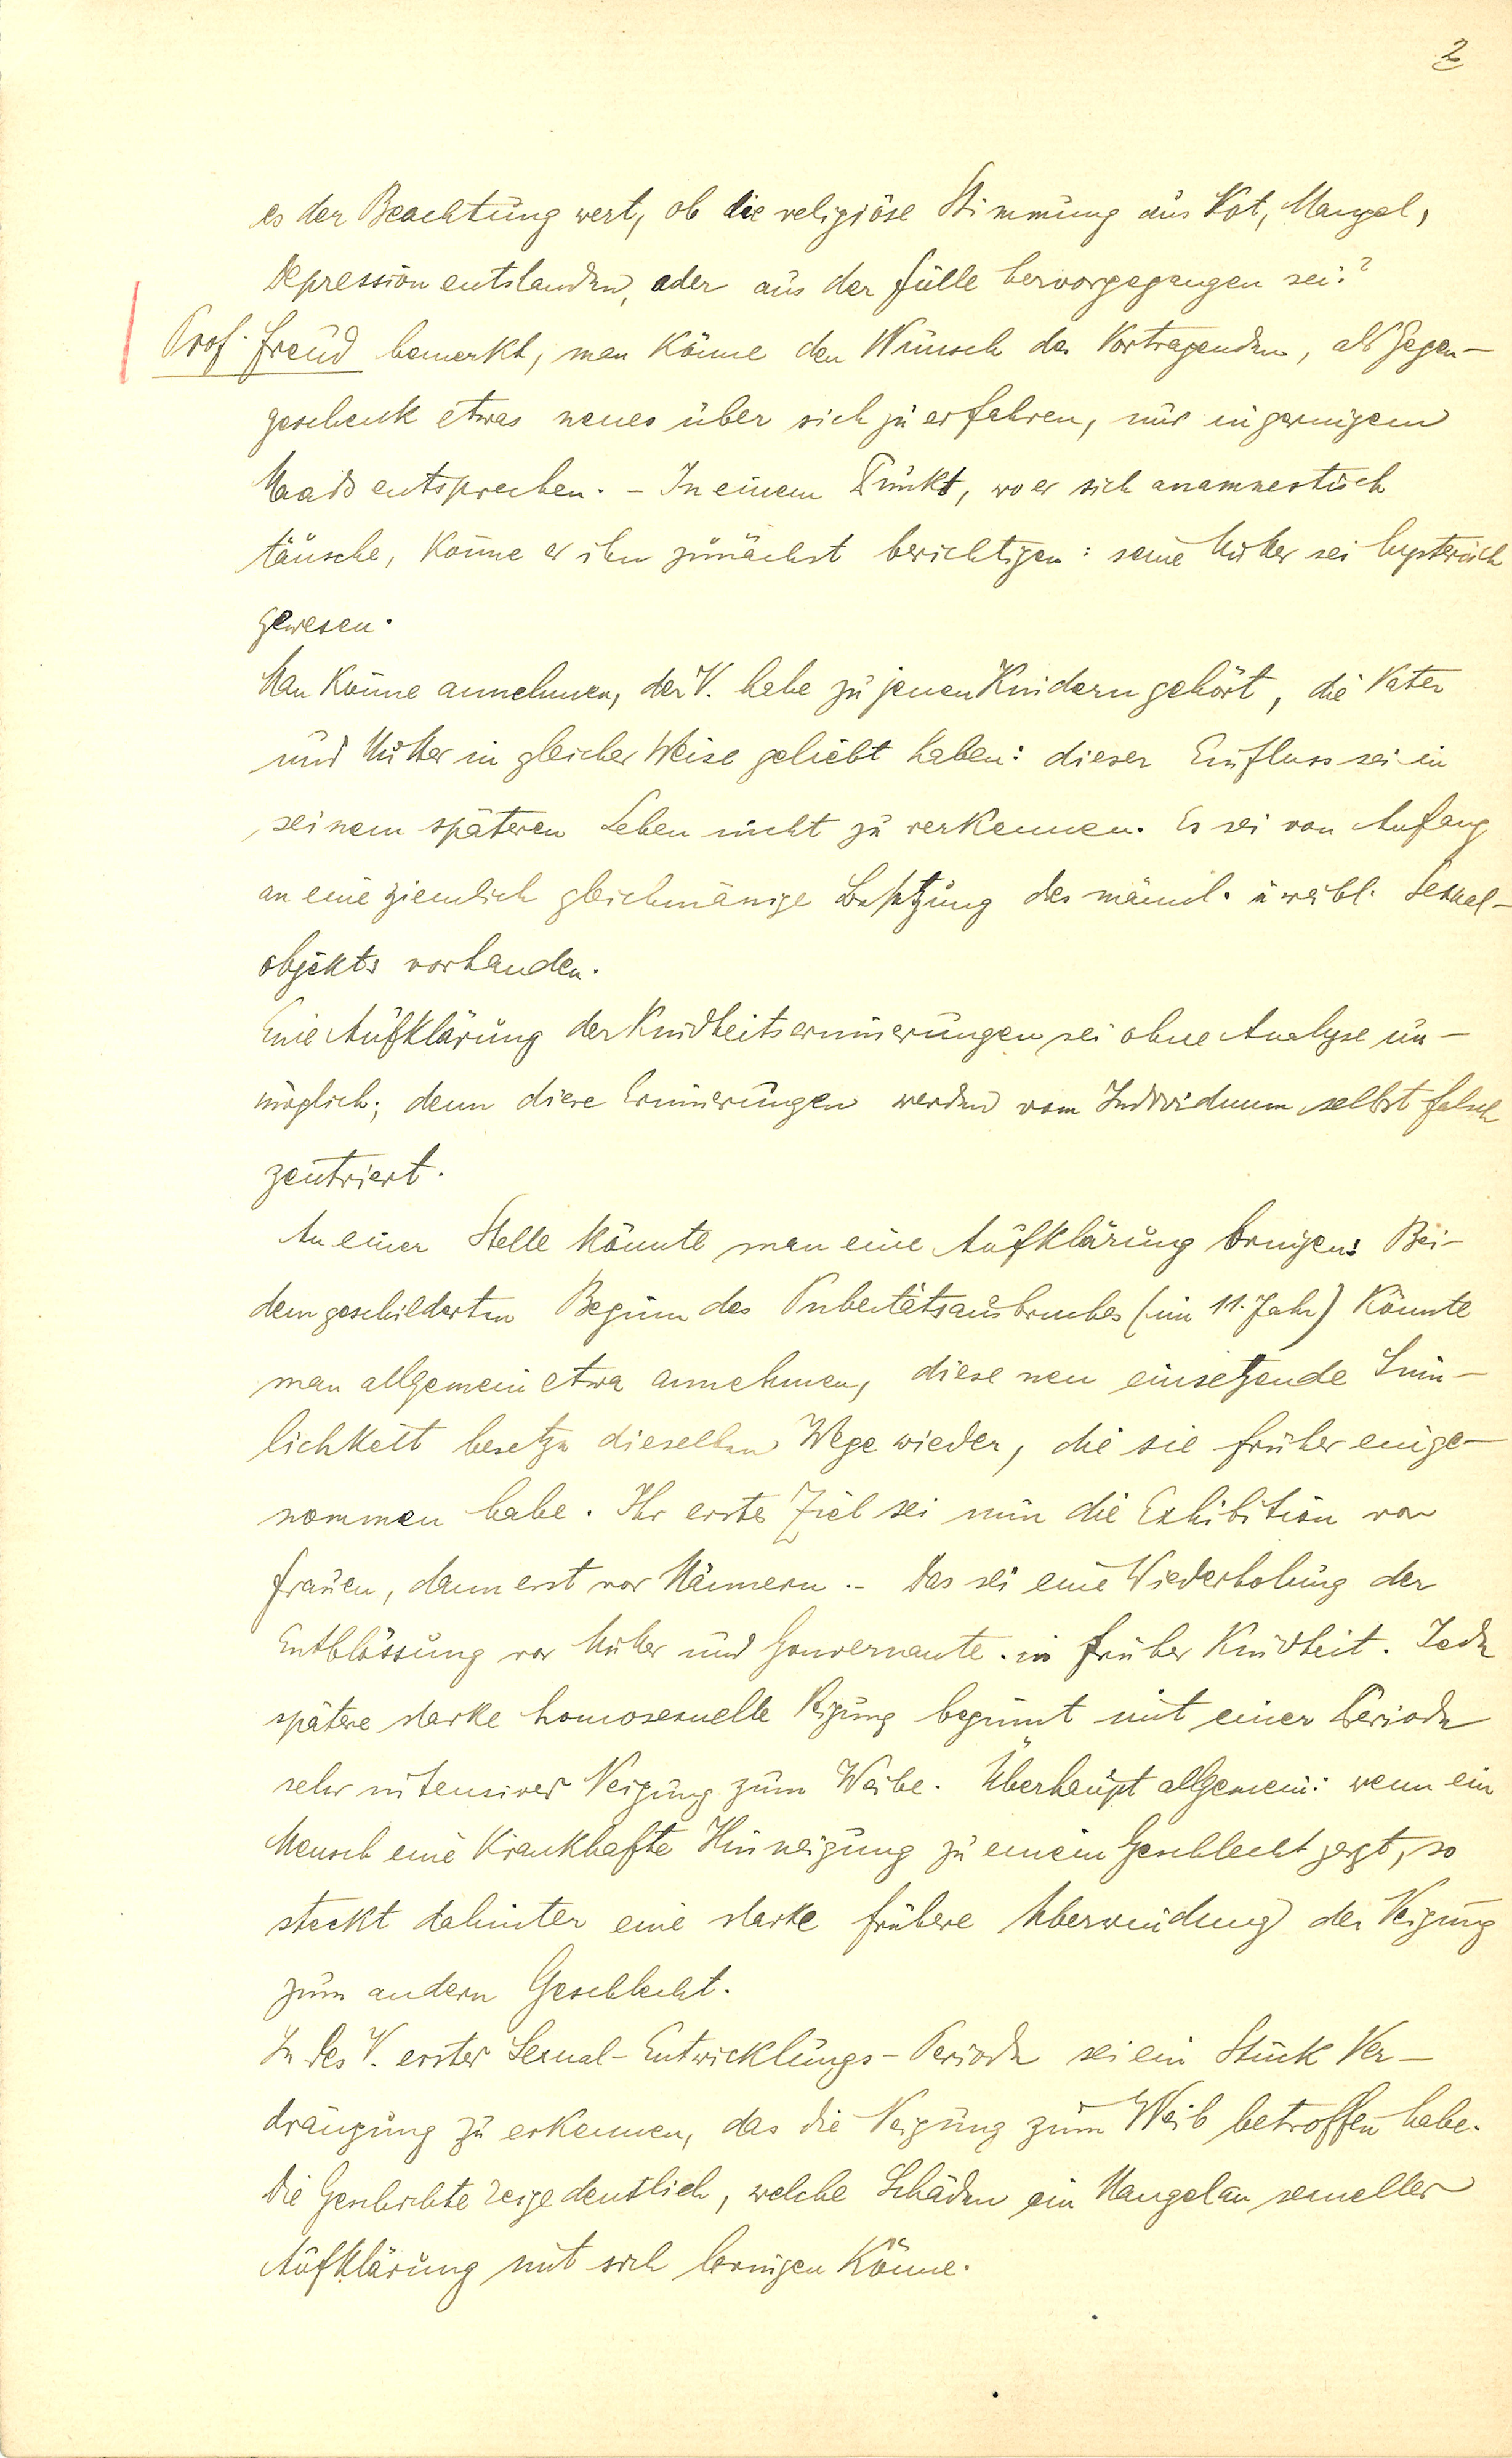 2
es der Beachtung wert, ob die religiöse Stimmung aus Not, Mangel,
Depression entstanden, oder aus der Fülle hervorgegangen sei?
Prof. Freud bemerkt, man könne den Wunsch des Vortragenden, als Gegen-
geschenk etwas neues über sich zu erfahren, nur in geringem
Maass entsprechen. – In einem Punkt, wo er sich anamnestisch
täusche, könne er ihn zunächst berichtigen: seine Mutter sei hysterisch
gewesen.
Man könne annehmen, der V. habe zu jenen Kindern gehört, die Vater
und Mutter in gleicher Weise geliebt haben: dieser Einfluss sei in
seinem späteren Leben nicht zu verkennen. Es sei von Anfang
an eine ziemlich gleichmässige Besetzung des männl. u weibl. Sexual-
objekts vorhanden.
Eine Aufklärung der Kindheitserinnerungen sei ohne Analyse un-
möglich; denn diese Erinnerungen werden vom Individuum selbst falsch
zentriert.
An einer Stelle könnte man eine Aufklärung bringen: Bei
dem geschilderten Beginn des Pubertätsausbruches (im 11. Jahr) könnte
man allgemein etwa annehmen, diese neu einsetzende Sinn-
lichkeit besetze dieselben Wege wieder, die sie früher einge-
nommen habe. Ihr erstes Ziel sei nun die Exhibition vor
Frauen, dann erst vor Männern. – Das sei eine Wiederholung der
Entblössung vor Mutter und Gouvernante in früher Kindheit. Jede
spätere starke homosexuelle Neigung beginnt mit einer Periode
sehr intensiver Neigung zum Weibe. Überhaupt allgemein: wenn ein
Mensch eine krankhafte Hinneigung zu einem Geschlecht zeigt, so
steckt dahinter eine starke frühere Überwindung der Neigung
zum andern Geschlecht.
In des V. erster Sexual-Entwicklungs-Periode sei ein Stück Ver-
drängung zu erkennen, das die Neigung zum Weib betroffen habe.
Die Geschichte zeige deutlich, welche Schäden ein Mangel an sexueller
Aufklärung mit sich bringen könne.